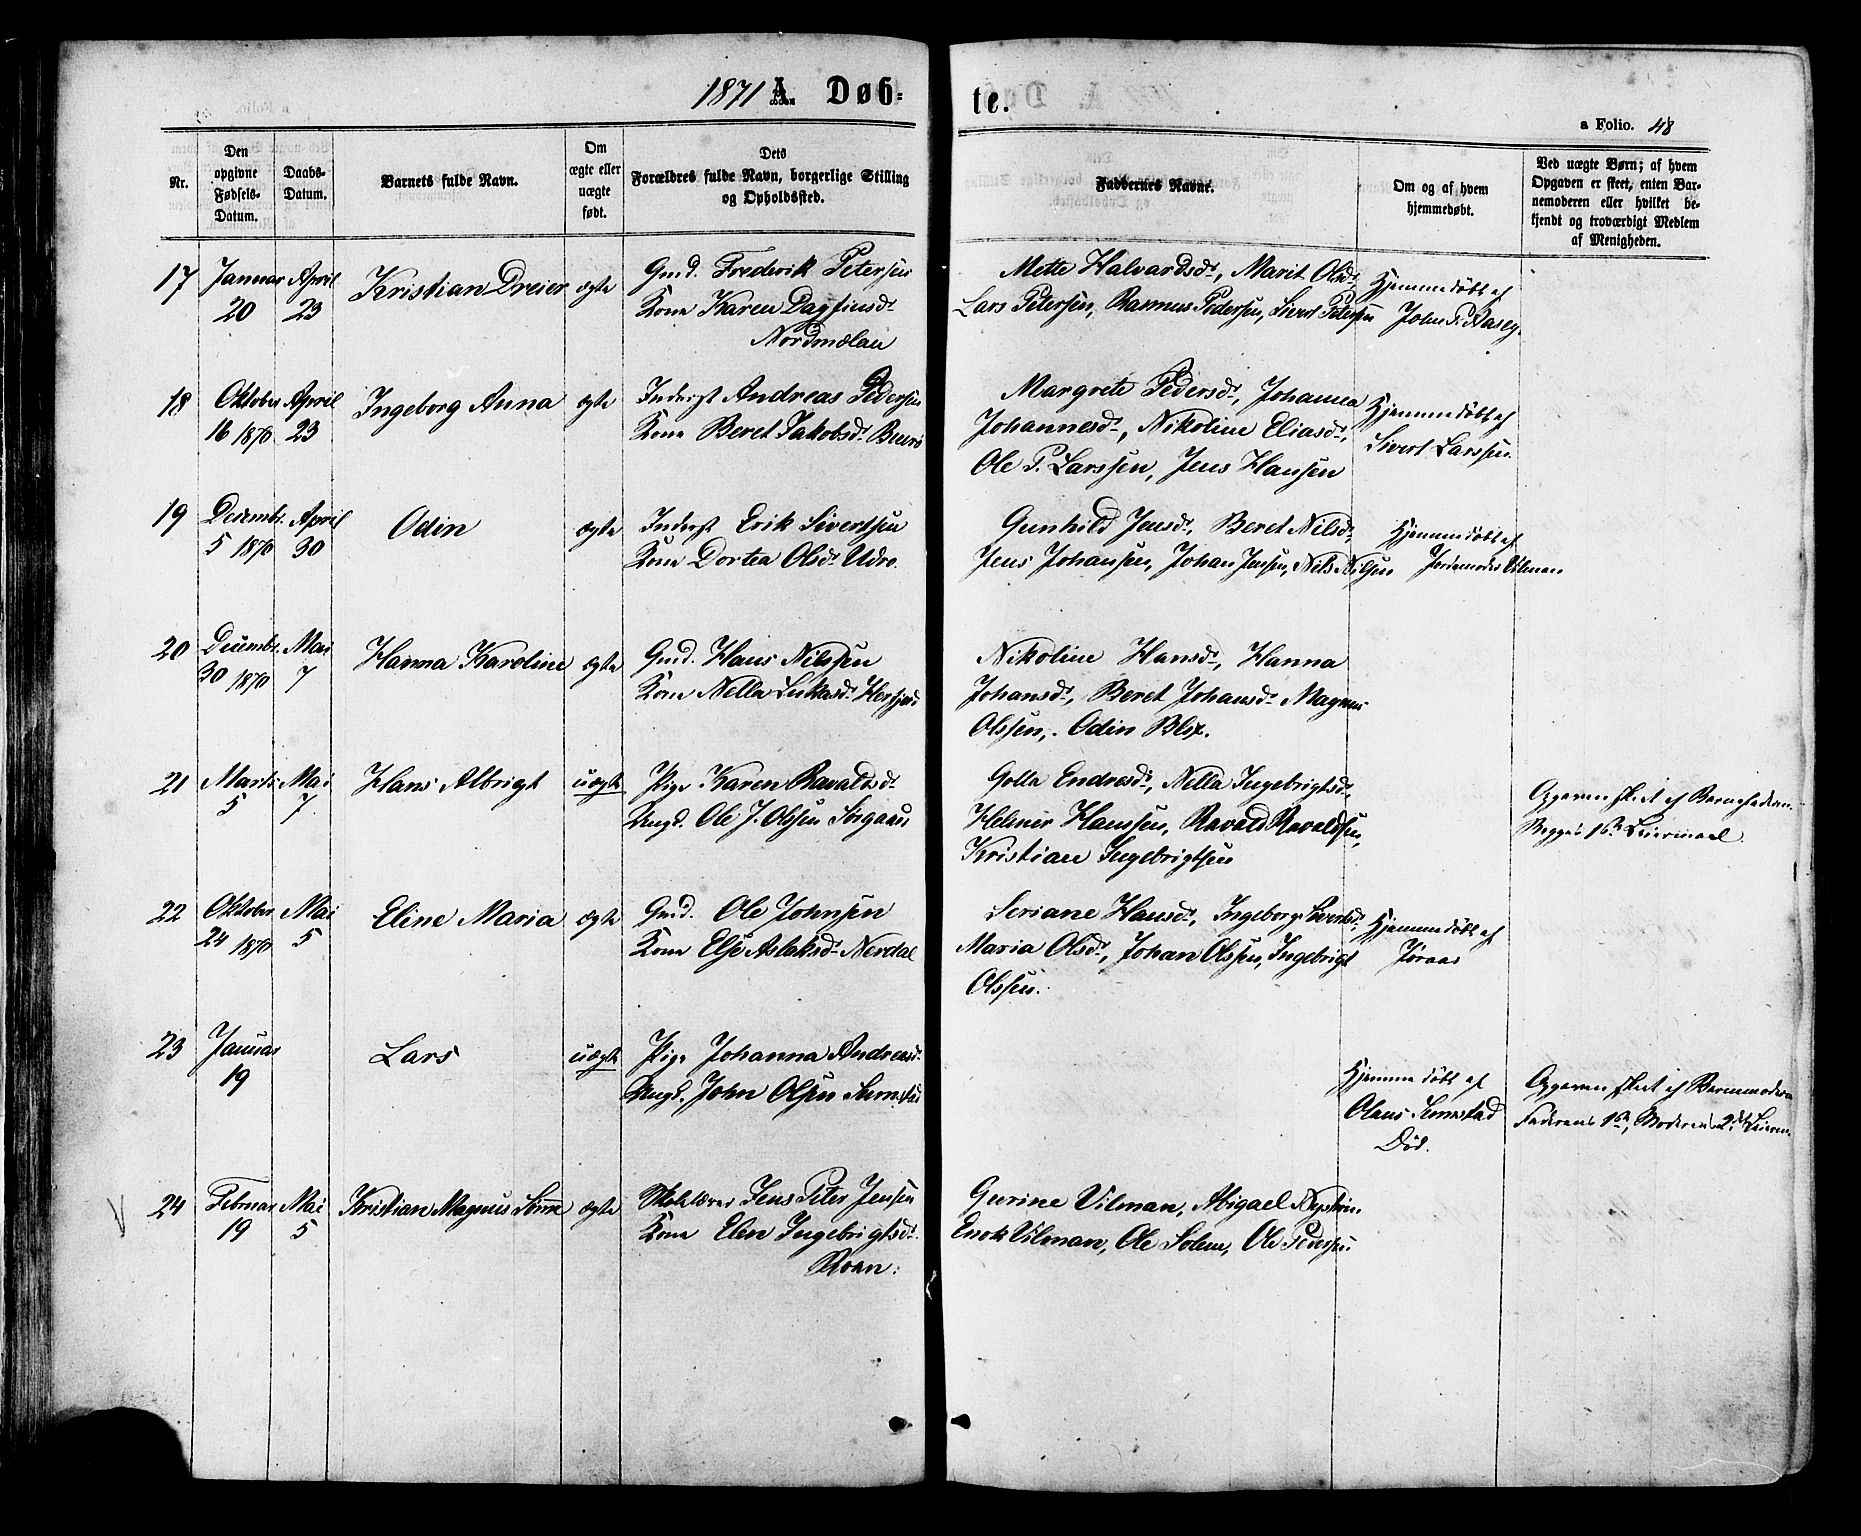 1871 A. Døb-
te.
a Folio. 48
Nr.
Den opgivne Fødsels-Datum.
Daabs-Datum.
Barnets fulde Navn.
Om ægte eller uægte født.
Dets Forældres fulde Navn, borgerlige Stilling og Opholdssted.
Faddernes Navne.
Om og af hvem hjemmedøbt.
Ved uægte Børn; af hvem Opgaven er skeet, enten Barnemoderen eller hvilket bekjendt og troværdigt Medlem af Menigheden.
17 Januar April Kristian Dreier ægte Gmd. Frederik Petersen Mette Halvardsd., Marit Olsd. Hjemmedøbt af
20 23 Kone Karen Dagfinsd. Lars Petersen, Rasmus Pedersen, Sivert Petersen John P.
Nordmælan
18 Oktober April Ingeborg Anna ægte Inderst Andreas Pedersen Margrete Pedersd., Johanna Hjemmedøbt af
16 1870 23 Kone Beret Jakobsd. Johannesd., Nikoline Eliasd., Sivert Larssen.
Ole P. Larssen, Jens Hansen
19 Decembr. April Odin ægte Inderst Erik Sivertsen Gunhild Jensd., Beret Nilsd. Hjemmedøbt af
5 1870 30 Kone Dortea Olsd. Udro. Jens Johansen, Johan Jensen, Nils Nilsen Jordemoder Vilman
20 Decembr. Mai Hanna Karoline ægte Gmd. Hans Nilssen Nikoline Hansd., Hanna
30 1870 7 Kone Nella Lukasd. Herfjord Johansd., Beret Johansd. Magnus
Olssen, Odin Blix.
21 Marts Mai Hans Albrigt uægte Pige Karen Ravaldsd. Golla Endresd., Nella Ingebrigtsd. Opgaven skeet af Barnefaderen.
5 7. Ungd. Ole J. Olssen Sørgaard Helmer Hanssen, Ravald Ravaldsen, Begges 1ste Leiermaal.
Kristian Ingebrigtsen
22 Oktober Mai Eline Maria ægte Gmd. Ole Johnsen Seriane Hansd., Ingeborg Sivertsd. Hjemmedøbt af
24 1870 5 Kone Else Aslaksd. Nerdal Maria Olsd., Johan Olssen, Ingebrigt Joraas
Olssen.
23 Januar Lars uægte Pige Johanna Andreasd. Hjemmedøbt af Opgaven skeet af Barnemoderen
19 Ungd. John Olsen Sumstad Olaus Sumstad Faderens 1ste, Moderens 2det Leierm.
Død.
24 Februar Mai Kristian Magnus ægte Skolelærer Jens Peter Jensen Gurine Vilman, Abigael Nystrøm
19 5 Kone Elen Ingebrigtsd. Enok Vilman, Ole Solem, Ole Pedersen
Roan.